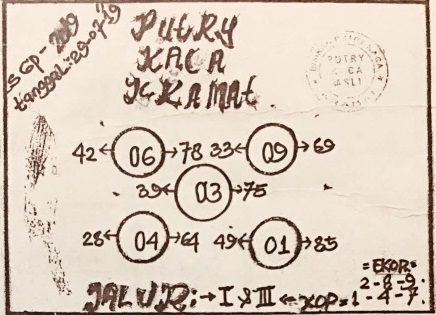 SGP-2019
tanggal:29-07-19
PUTRY
KACA
KRAMAt.
PUTRY
KACA
ASLI
42 ← 06 → 78
33 ← 09 → 69
39 ← 03 → 75
28 ← 04 → 64
49 ← 01 → 85
=EKOR=
2-8-9.
JALUR: → I & III ← KOP = 1-4-7.